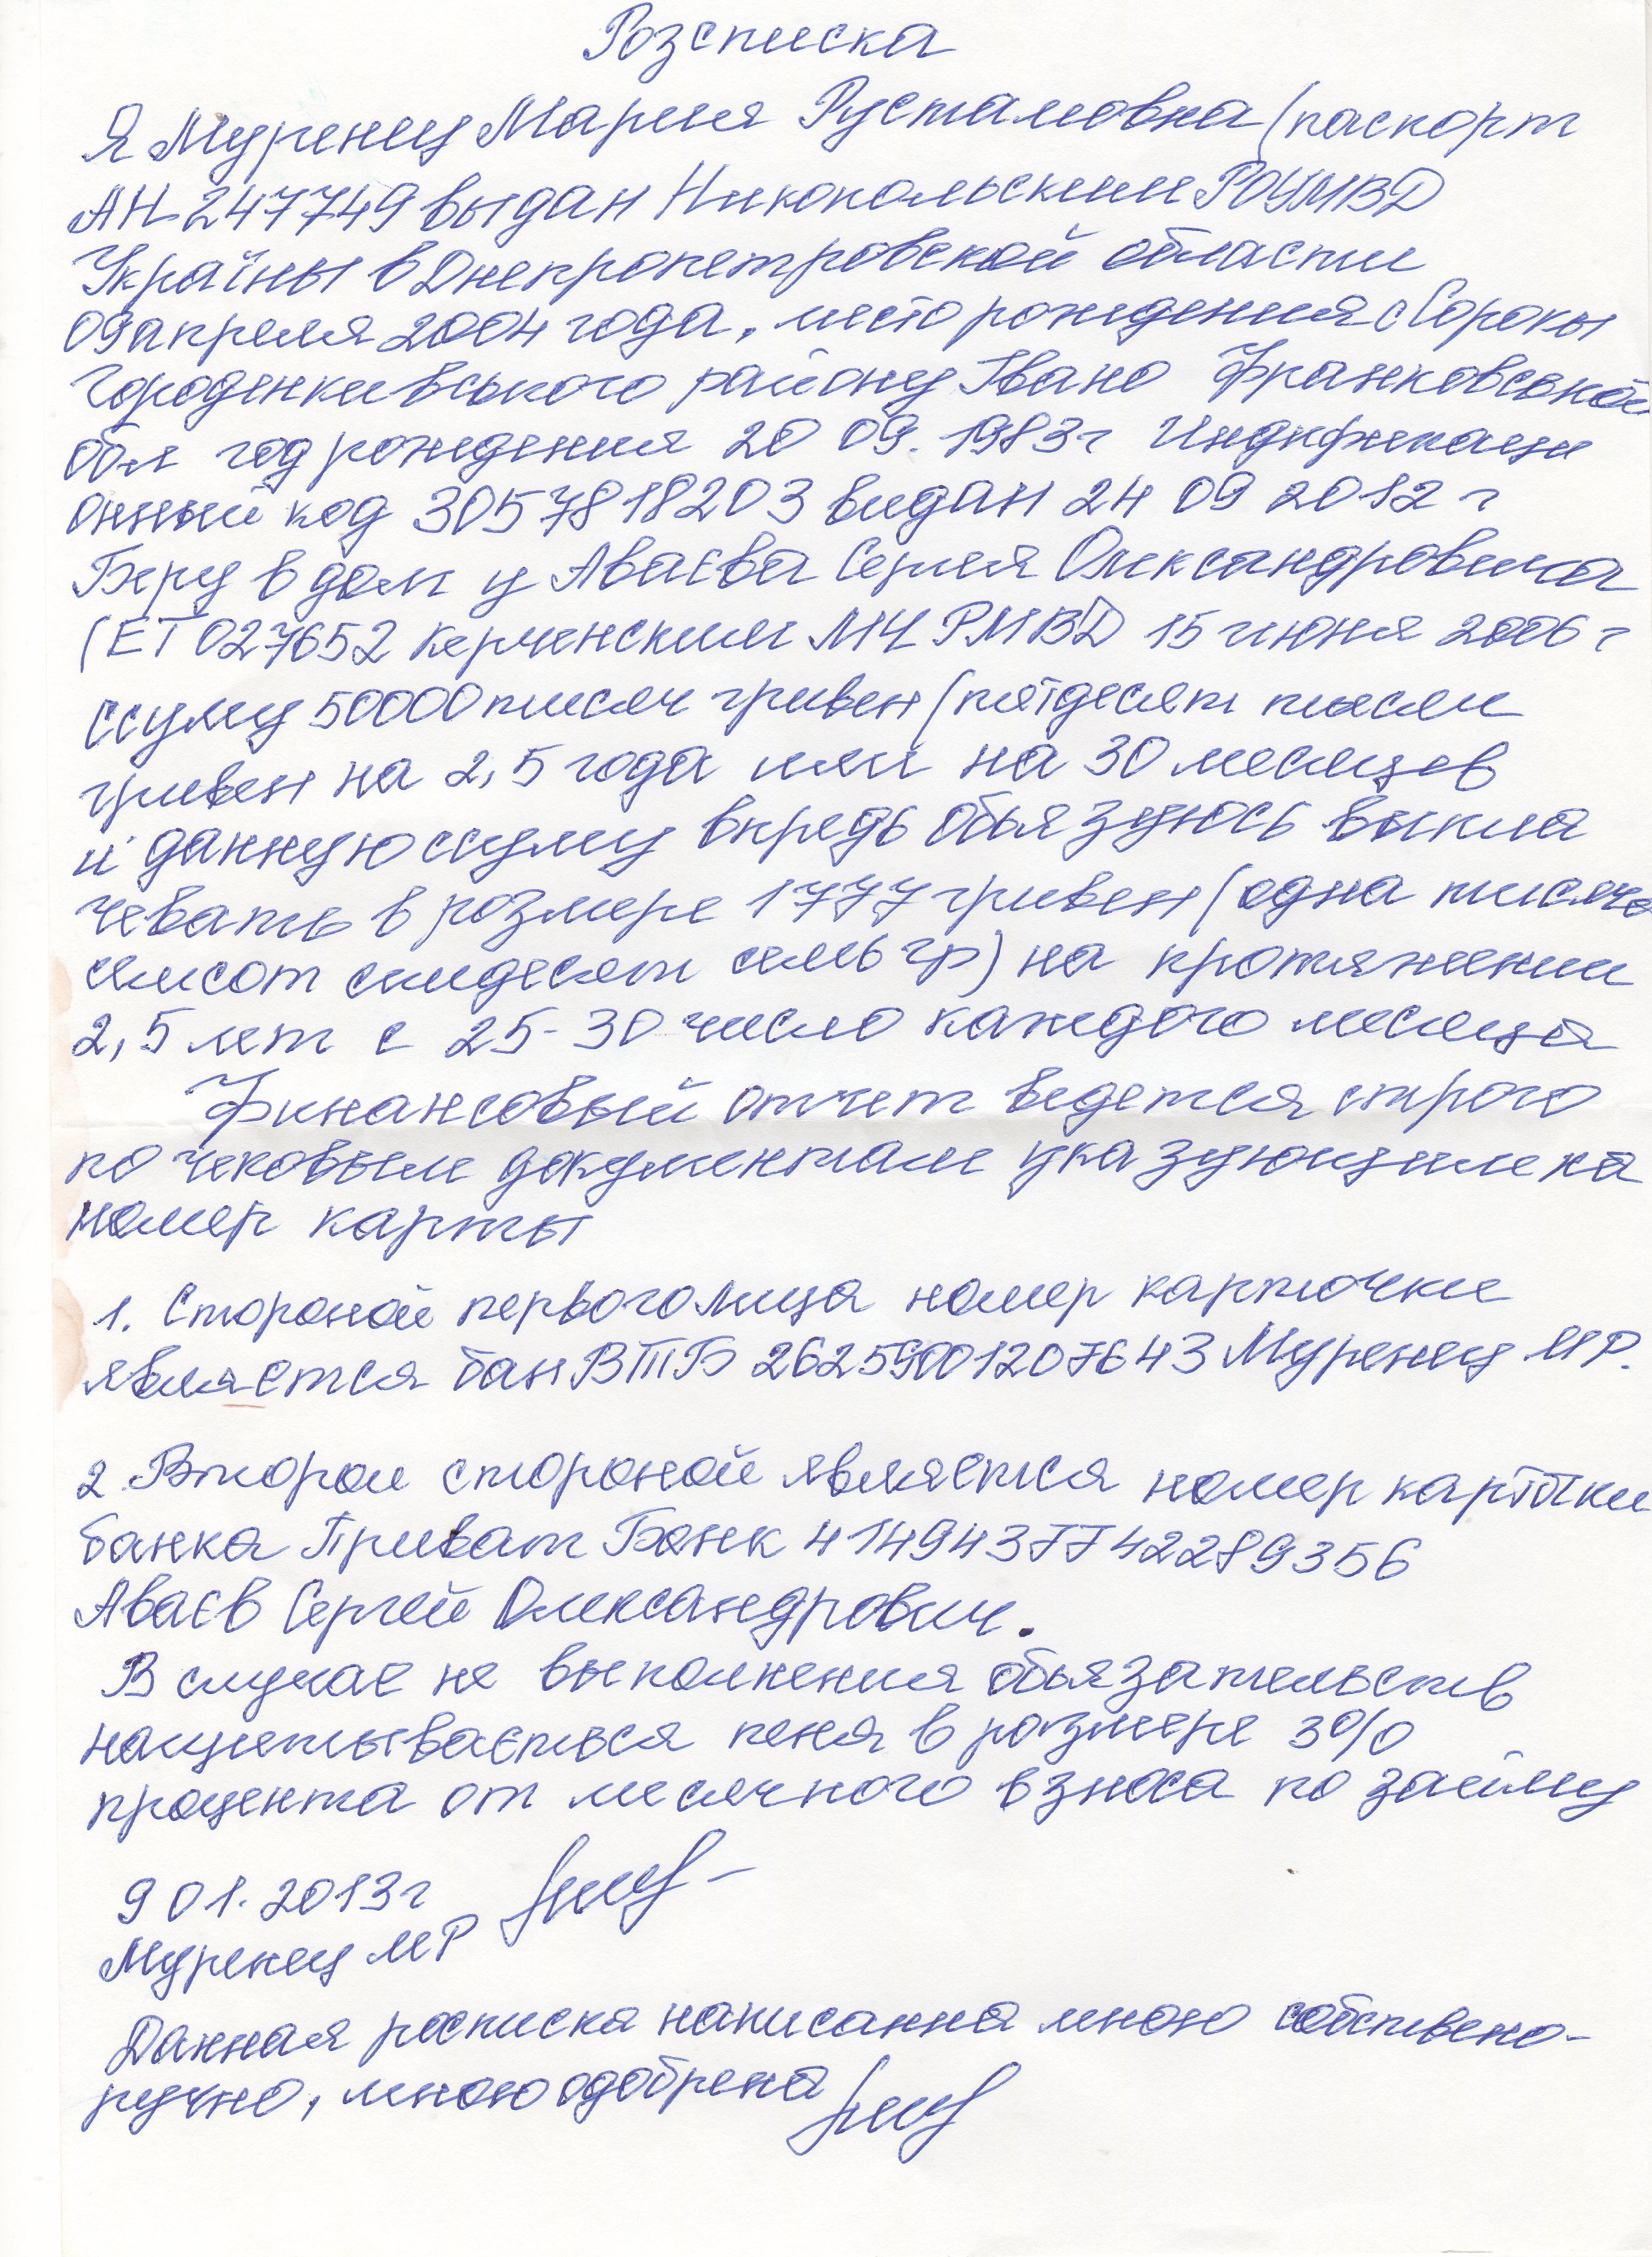 Розсписка
Я Муренец Мария Рустамовна (паспорт
АН 247749 выдан Никопольским РОУМВД
Украïны в Днепропетровской области
09 апреля 2004 года, место рождения с Сороки
Городенкивського району Івано Франковской
обл год рождения 20 09. 1983 г Индификаци
онный код 3057818203 видан 24 09 2012 г
Беру в долг у Аваєва Сергея Олександровича
(ЕТ 027652 Керченским МЧ РМВД 15 июня 2006 г
ссуму 50000 тисяч гривен (пятдесят тысяч
гривен на 2,5 года или на 30 месяцев
и данную ссуму впредь обьязуюсь выпла
чевать в розмере 1777 гривен (одна тисяча
семсот симдесят семь гр) на протяжении
2,5 лет с 25-30 число каждого месяца
Финансовый отчет ведется строго
по чековым документам указующим на
номер карты
1. Стороной первого лица номер карточки
является бан ВТБ 26259001207643 Муренец М Р.
2. Второй стороной является номер карточки
банка Приват Банк 4149437742289356
Аваєв Сергей Олександрович.
В случае не выполнения обьязательств
нащитываеться пеня в размере 3%
процента от месячного взноса по займу
9 01. 2013 г
Муренец МР
Данная росписка написанна мною собствено-
ручно, мною одобрена